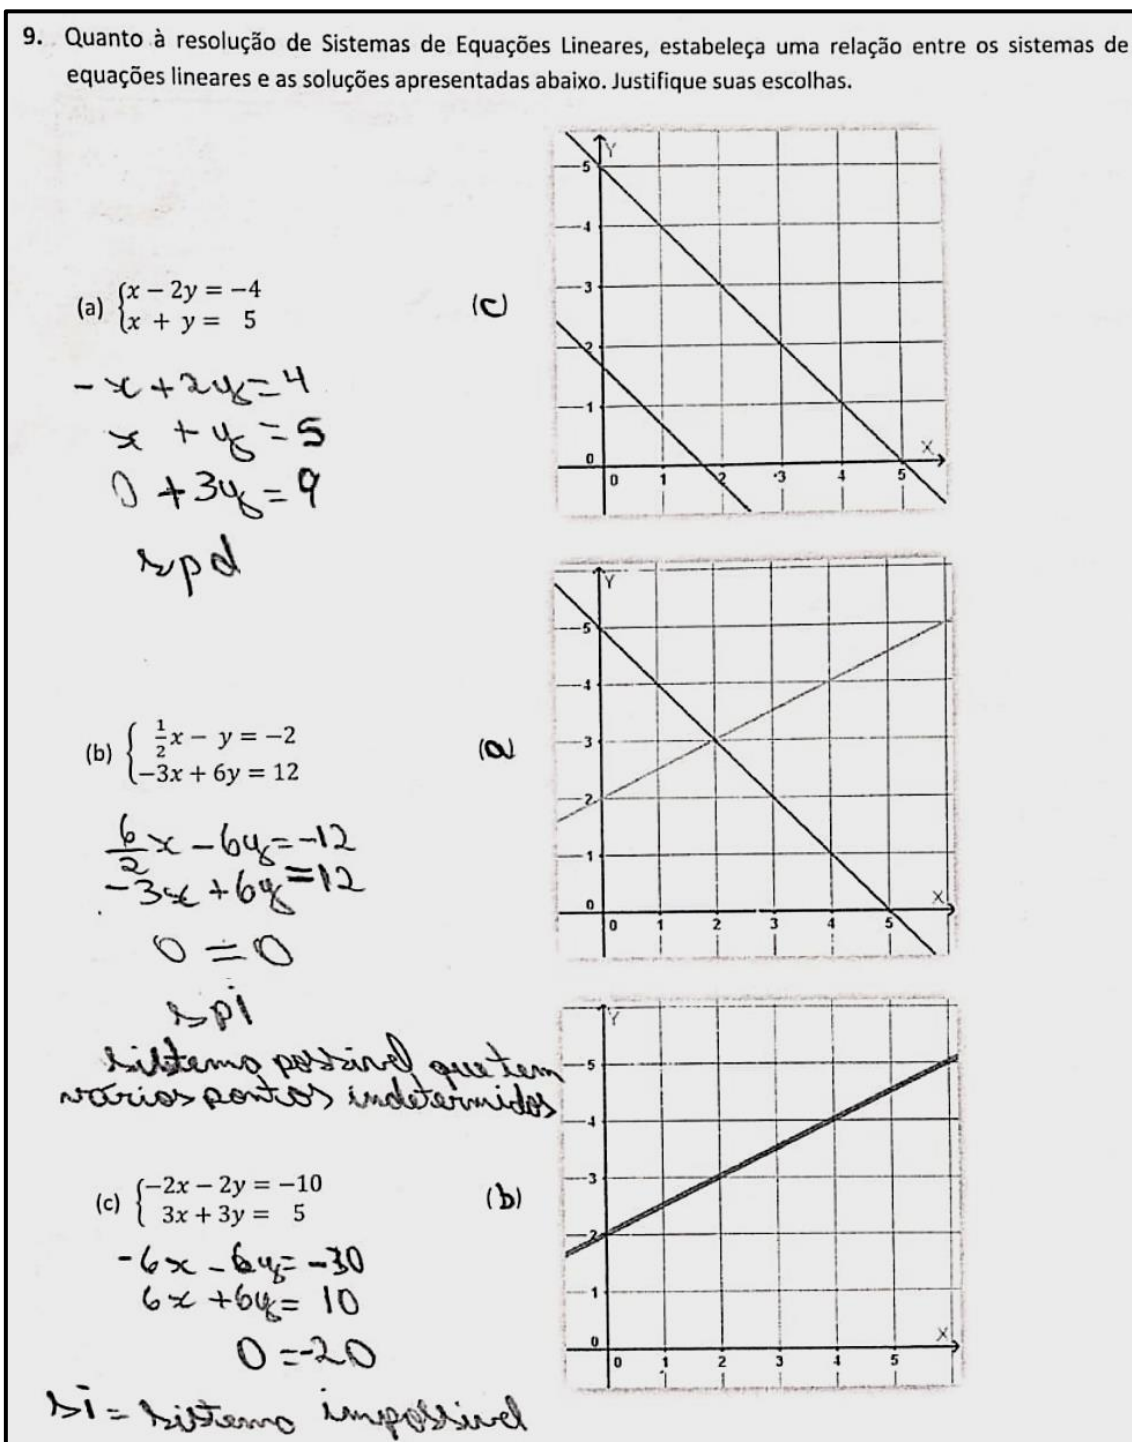 9. Quanto à resolução de Sistemas de Equações Lineares, estabeleça uma relação entre os sistemas de
equações lineares e as soluções apresentadas abaixo. Justifique suas escolhas.
(a) {x − 2y = −4
x + y = 5
-x + 2y = 4
x + y = 5
0 + 3y = 9
spd
(c)
Y
5
4
3
2
1
0
0 1 2 3 4 5
X
(b) { 1/2 x − y = −2
−3x + 6y = 12
6/2 x - 6y = -12
-3x + 6y = 12
0 = 0
spi
sistema possivel que tem
vários pontos indetermidos
(a)
Y
5
4
3
2
1
0
0 1 2 3 4 5
X
(c) {−2x − 2y = −10
3x + 3y = 5
-6x - 6y = -30
6x + 6y = 10
0 = -20
si = sistema impossivel
(b)
Y
5
4
3
2
1
0
0 1 2 3 4 5
X